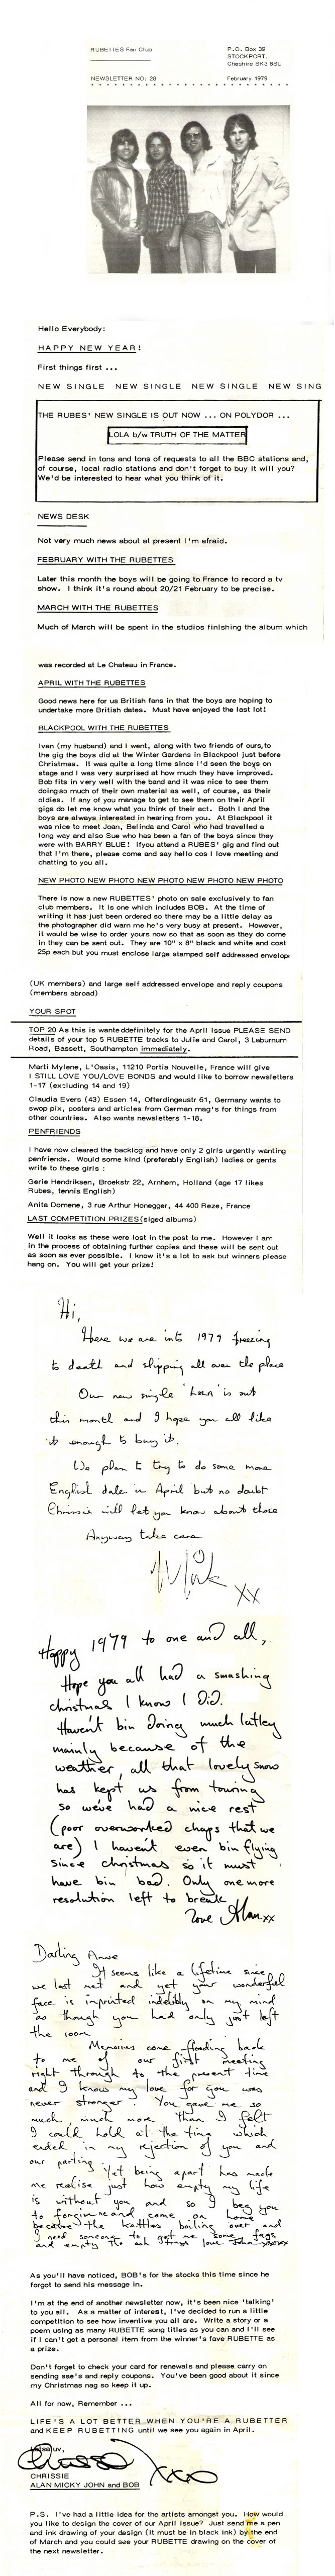 RUBETTES Fan Club
P.O. Box 39
STOCKPORT,
Cheshire SK3 8SU
NEWSLETTER NO: 28
February 1979
Hello Everybody:
HAPPY NEW YEAR!
First things first ...
NEW SINGLE NEW SINGLE NEW SINGLE NEW SING
THE RUBES' NEW SINGLE IS OUT NOW ... ON POLYDOR ...
LOLA b/w TRUTH OF THE MATTER
Please send in tons and tons of requests to all the BBC stations and,
of course, local radio stations and don't forget to buy it will you?
We'd be interested to hear what you think of it.
NEWS DESK
Not very much news about at present I'm afraid.
FEBRUARY WITH THE RUBETTES
Later this month the boys will be going to France to record a tv
show. I think it's round about 20/21 February to be precise.
MARCH WITH THE RUBETTES
Much of March will be spent in the studios finishing the album which
was recorded at Le Chateau in France.
APRIL WITH THE RUBETTES
Good news here for us British fans in that the boys are hoping to
undertake more British dates. Must have enjoyed the last lot!
BLACKPOOL WITH THE RUBETTES
Ivan (my husband) and I went, along with two friends of ours,to
the gig the boys did at the Winter Gardens in Blackpool just before
Christmas. It was quite a long time since I'd seen the boys on
stage and I was very surprised at how much they have improved.
Bob fits in very well with the band and it was nice to see them
doing so much of their own material as well, of course, as their
oldies. If any of you manage to get to see them on their April
gigs do let me know what you think of their act. Both I and the
boys are always interested in hearing from you. At Blackpool it
was nice to meet Joan, Belinda and Carol who had travelled a
long way and also Sue who has been a fan of the boys since they
were with BARRY BLUE! If you attend a RUBES' gig and find out
that I'm there, please come and say hello cos I love meeting and
chatting to you all.
NEW PHOTO NEW PHOTO NEW PHOTO NEW PHOTO NEW PHOTO
There is now a new RUBETTES' photo on sale exclusively to fan
club members. It is one which includes BOB. At the time of
writing it has just been ordered so there may be a little delay as
the photographer did warn me he's very busy at present. However,
it would be wise to order yours now so that as soon as they do come
in they can be sent out. They are 10" x 8" black and white and cost
25p each but you must enclose large stamped self addressed envelop
(UK members) and large self addressed envelope and reply coupons
(members abroad)
YOUR SPOT
TOP 20 As this is wanteddefinitely for the April issue PLEASE SEND
details of your top 5 RUBETTE tracks to Julie and Carol, 3 Laburnum
Road, Bassett, Southampton immediately.
Marti Mylene, L'Oasis, 11210 Portia Nouvelle, France will give
I STILL LOVE YOU/LOVE BONDS and would like to borrow newsletters
1-17 (excluding 14 and 19)
Claudia Evers (43) Essen 14, Offerdingeustr 61, Germany wants to
swop pix, posters and articles from German mag's for things from
other countries. Also wants newsletters 1-18.
PENFRIENDS
I have now cleared the backlog and have only 2 girls urgently wanting
penfriends. Would some kind (preferably English) ladies or gents
write to these girls :
Gerie Hendriksen, Broekstr 22, Arnhem, Holland (age 17 likes
Rubes, tennis English)
Anita Domene, 3 rue Arthur Honegger, 44 400 Reze, France
LAST COMPETITION PRIZES (siged albums)
Well it looks as these were lost in the post to me. However I am
in the process of obtaining further copies and these will be sent out
as soon as ever possible. I know it's a lot to ask but winners please
hang on. You will get your prize!
Hi,
Here we are into 1979 freezing
to death and slipping all over the place
Our new single 'Lola' is out
this month and I hope you all like
it enough to buy it.
We plan to try to do some more
English dates in April but no doubt
Chrissie will let you know about those
Anyway take care
Mick
XX
Happy 1979 to one and all,
Hope you all had a smashing
christmas I know I Did.
Haven't bin doing much latley
mainly because of the
weather, all that lovely snow
has kept us from touring
so we've had a nice rest
(poor overworked chaps that we
are) I havent even bin flying
since christmas so it must
have bin bad. Only one more
resolution left to break
love Alan xx
Darling Anne
It seems like a lifetime since
we last met and yet your wonderful
face is imprinted indelibly on my mind
as though you had only just left
the room.
Memories come flooding back
to me of our first meeting
right through to the present time
and I know my love for you was
never stronger. You gave me so
much, much more than I felt
I could hold at the time which
ended in my rejection of you and
our parting. Yet being apart has made
me realise just how empty my life
is without you and so I beg you
to forgive me and come on home
because the kettles boiling over and
I need someone to get me some fags
and empty the ash trays love John xxxx
As you'll have noticed, BOB's for the stocks this time since he
forgot to send his message in.
I'm at the end of another newsletter now, it's been nice 'talking'
to you all. As a matter of interest, I've decided to run a little
competition to see how inventive you all are. Write a story or a
poem using as many RUBETTE song titles as you can and I'll see
if I can't get a personal item from the winner's fave RUBETTE as
a prize.
Don't forget to check your card for renewals and please carry on
sending sae's and reply coupons. You've been good about it since
my Christmas nag so keep it up.
All for now, Remember ...
LIFE'S A LOT BETTER WHEN YOU'RE A RUBETTER
and KEEP RUBETTING until we see you again in April.
luv,
Chrissie xxx
CHRISSIE
ALAN MICKY JOHN and BOB
P.S. I've had a little idea for the artists amongst you. How would
you like to design the cover of our April issue? Just send me a pen
and ink drawing of your design (it must be in black ink) by the end
of March and you could see your RUBETTE drawing on the cover of
the next newsletter.